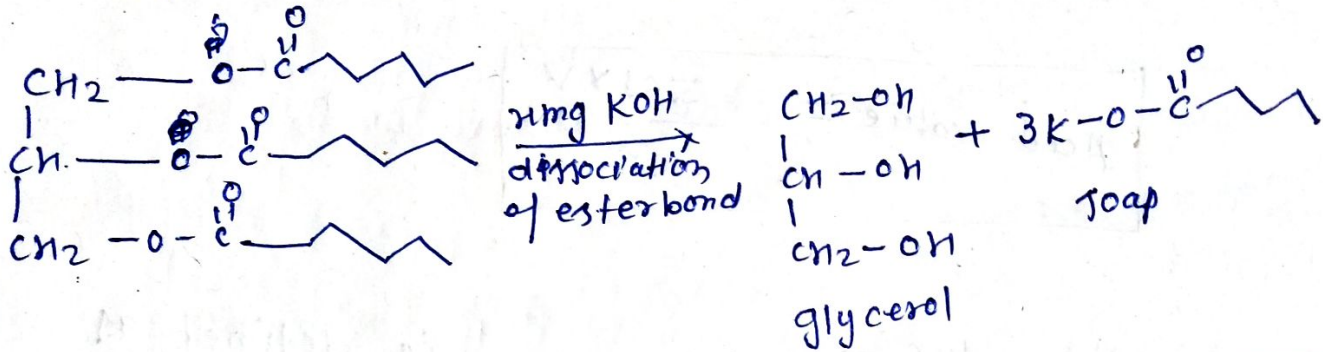 CH2 — O — C = O
CH — O — C = O
CH2 — O — C = O
xmg KOH
dissociation
of esterbond
CH2-OH
CH - OH
CH2 - OH
glycerol
+ 3K-O-C=O
soap